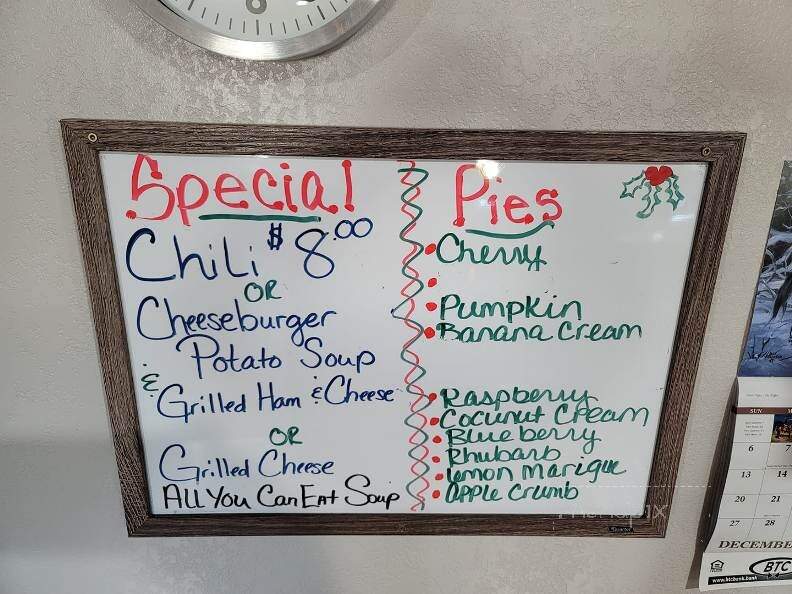 Special
Chili $8.00
OR
Cheeseburger
Potato Soup
&
Grilled Ham & Cheese
OR
Grilled Cheese
All You Can Eat Soup
Pies
Cherry
Pumpkin
Banana Cream
Raspberry
Cocunut Cream
Blueberry
Rhubarb
Lemon Marigue
Apple Crumb
SUN
6 7
13 14
20 21
27 28
DECEMBE
BTC
www.btcbank.bank